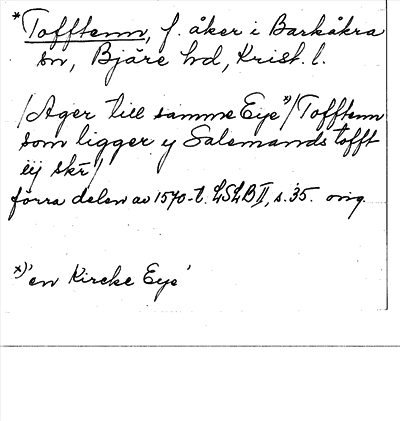 *Tofftenn, f. åker i Barkåkra
sn, Bjäre hd, Krist. l.
/Ager till samme Eye*)/Tofftenn
som ligger y Salemands tofft
eij skr/
förra delen av 1570-t. LSLB II, s. 35. orig.
*)'en Kircke Eye'